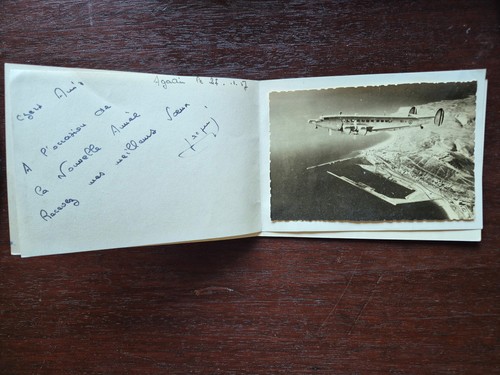 Agadir le 28.12.57
Chers Amis
A l'occasion de
la Nouvelle Année
Recevez mes meilleurs Vœux